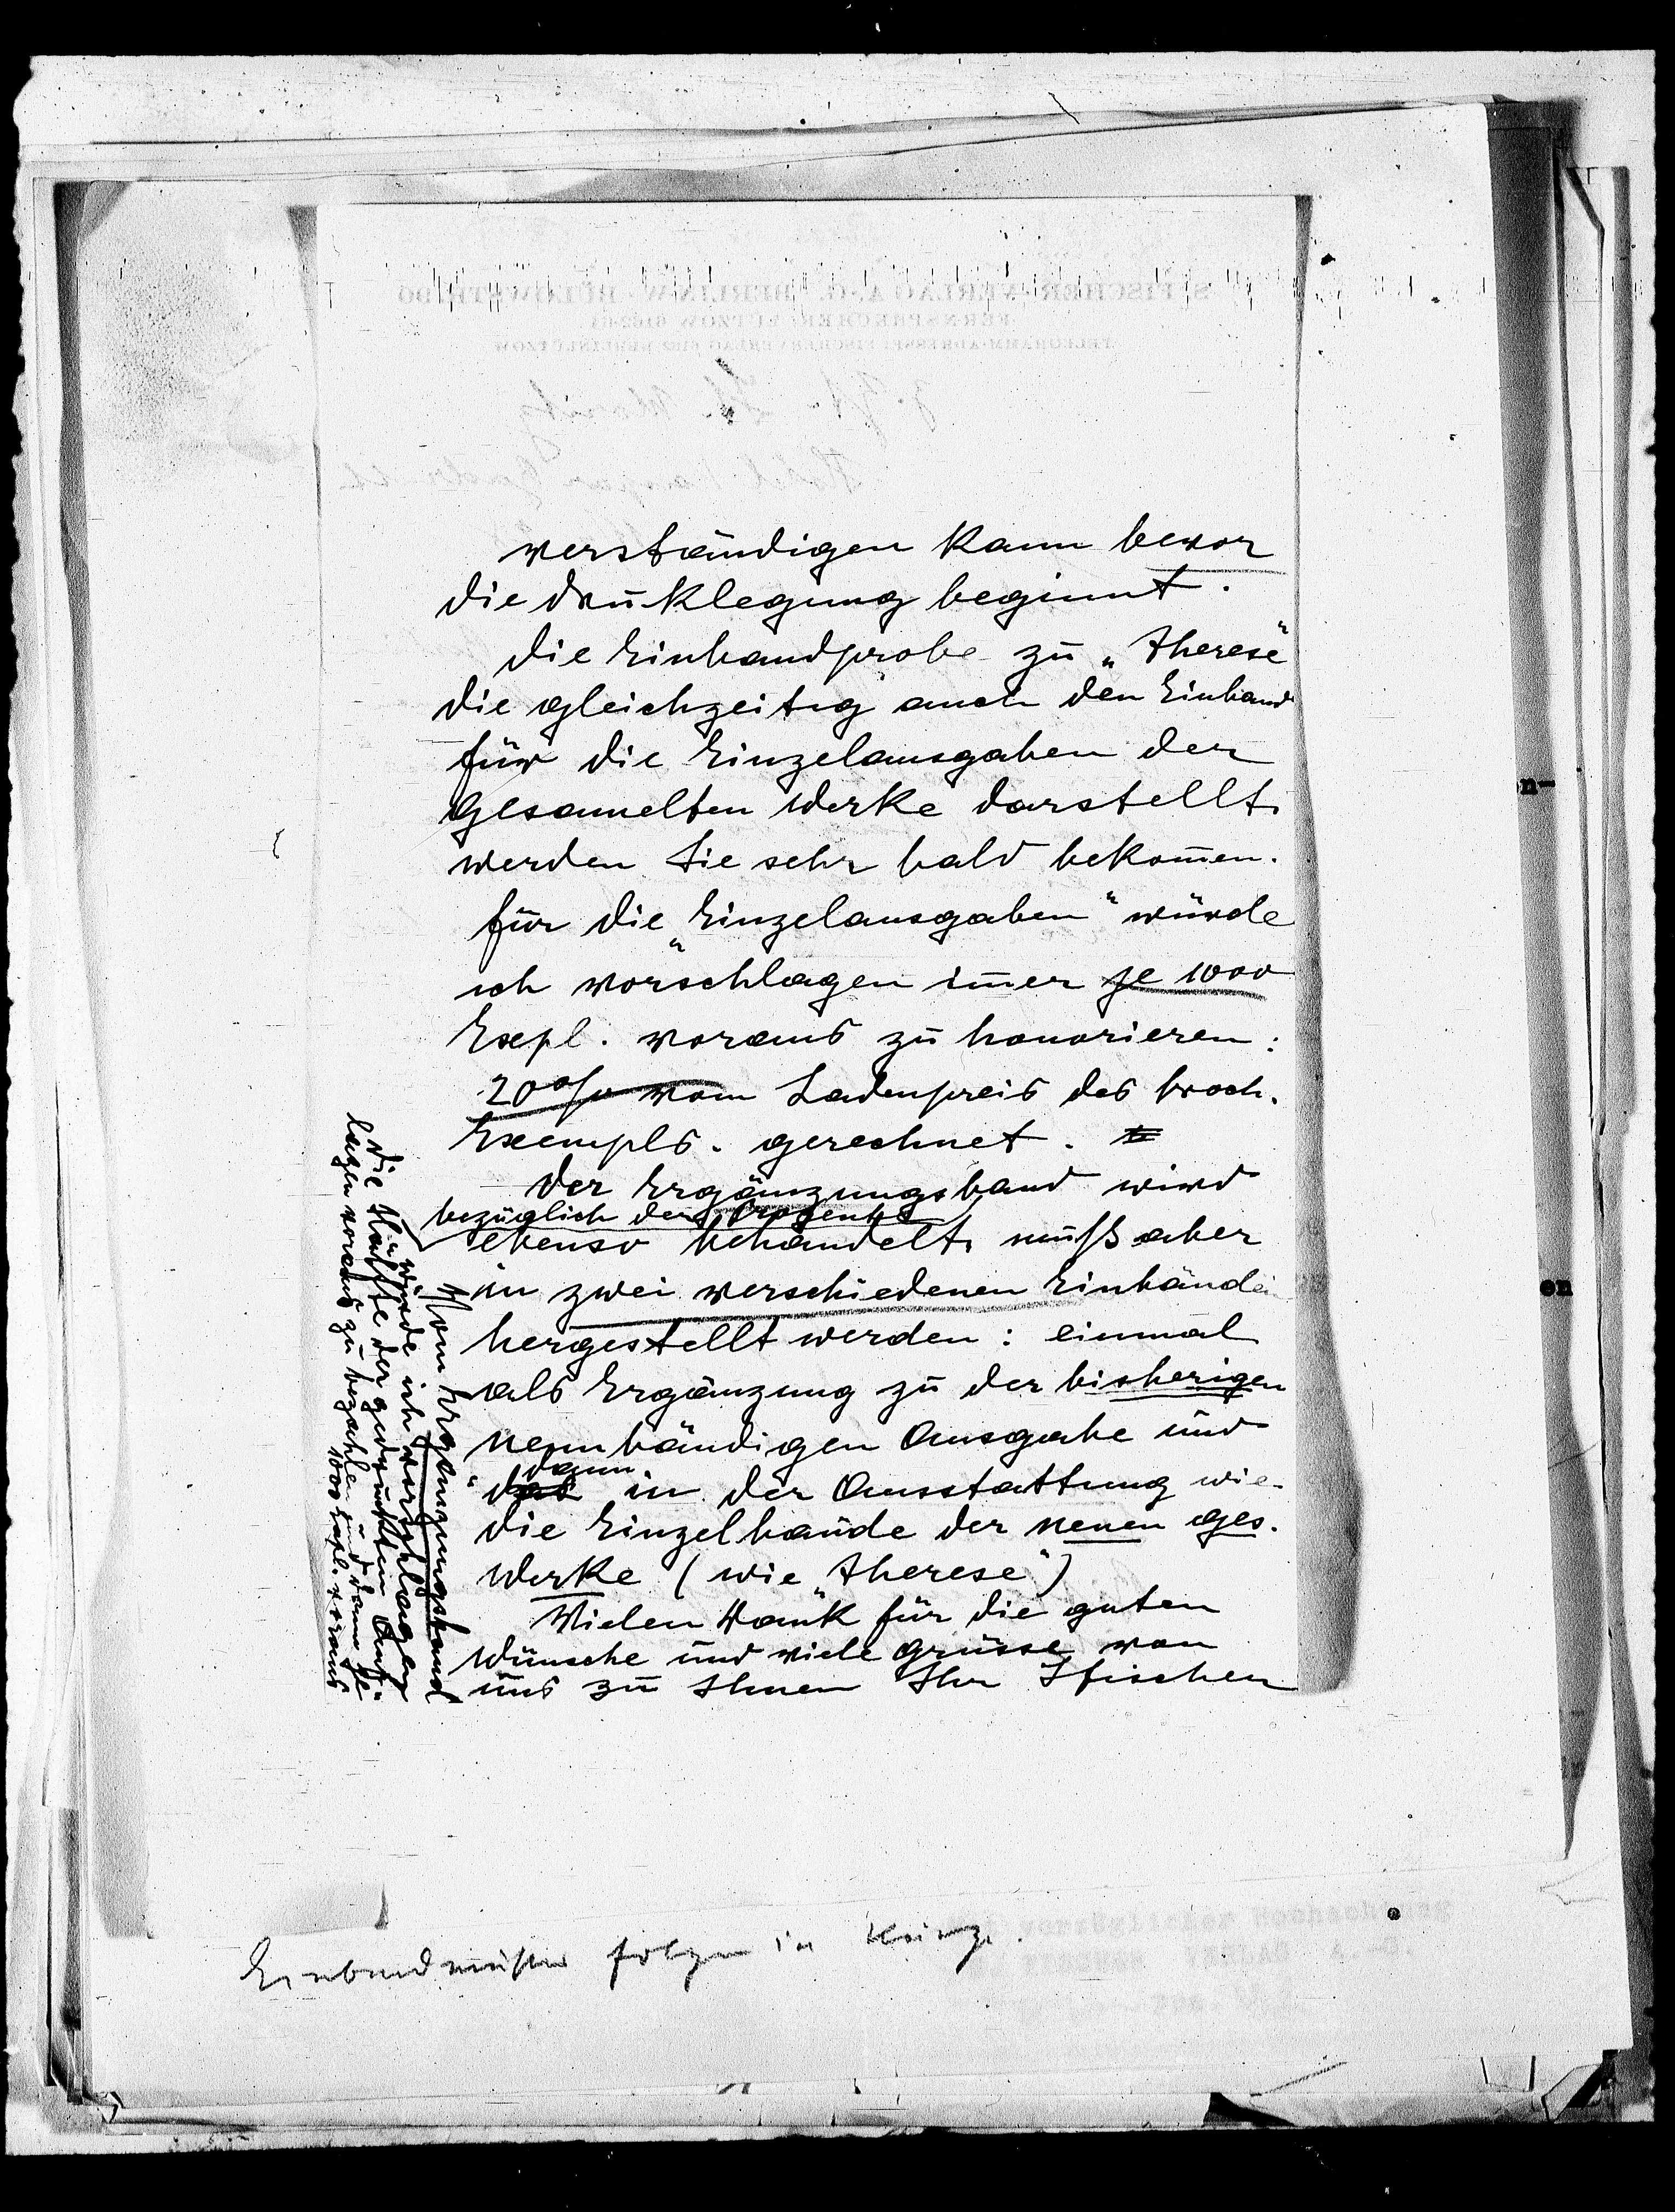 verständigen kann bevor
die Druklegung beginnt.
Die Einbandprobe zu „Therese"
die gleichzeitig auch den Einband
für die Einzelausgaben der
Gesam̄elten Werke darstellt,
werden Sie sehr bald bekom̄en.
Für die „Einzelausgaben" würde
ich vorschlagen im̄er je 1000
Expl. voraus zu honorieren:
20% vom Ladenpreis des broch.
Exempls. gerechnet.
Der Ergänzungsband wird
bezüglich der Prozente
ebenso behandelt, muß aber
in zwei verschiedenen Einbänden
hergestellt werden: einmal
als Ergänzung zu der bisherigen
neunbändigen Ausgabe und
dann
das in der Ausstattung wie
die Einzelbände der neuen Ges.
Werke (wie „Therese")
Vielen Dank für die guten
Wünsche und viele Grüsse von
uns zu Ihnen Ihr SFischer
Vom Ergänzungsband
würde ich vorschlagen
die Hälfte der gedruckten Auf-
lagen voraus zu bezahlen und dann je
1000 Expl. voraus
Einbandmuster folgen in Kürze.
S. FISCHER VERLAG A.-G. BERLIN W · BÜLOWSTR. 90
FERNSPRECHER: LÜTZOW 6162-64
z. Zt. St. Moritz
n-
en
vorzüglicher Hochachtung